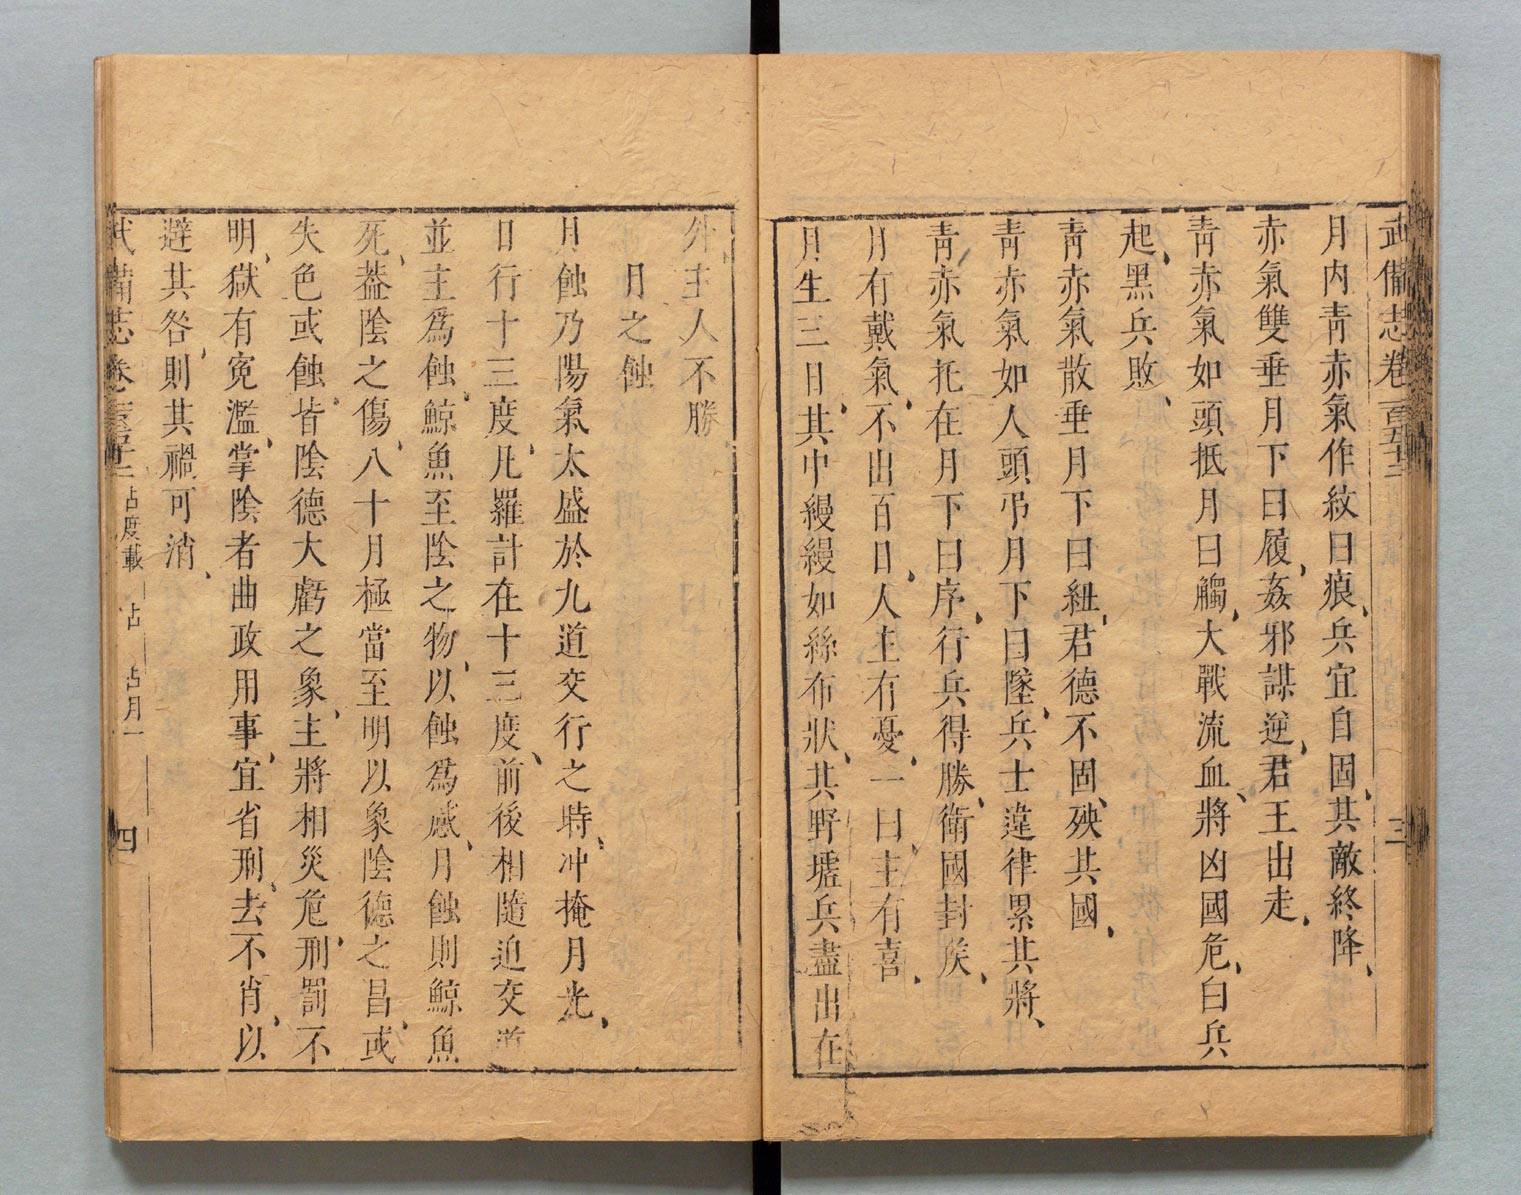 武備志卷一百五十二 三
月内青赤氣作紋曰痕、兵宜自固、其敵終降、
赤氣雙垂月下曰履、姦邪謀逆、君王出走、
青赤氣如頭抵月曰觸、大戰流血、將凶國危、白兵
起、黑兵敗、
青赤氣散垂月下曰紐、君德不固、殃其國、
青赤氣如人頭弔月下曰墜、兵士違律累其將、
青赤氣托在月下曰序、行兵得勝、衛國封侯、
月有戴氣、不出百日、人主有憂、一曰、主有喜、
月生三日、其中縵縵如絲布狀、其野墟兵盡出在
外主人不勝
月之蝕
月蝕乃陽氣太盛於九道交行之時、冲掩月光、
日行十三度、凡羅計在十三度、前後相隨迫交道
並主爲蝕、鯨魚至陰之物、以蝕爲感、月蝕則鯨魚
死、葢陰之傷、八十月極當至明以象陰德之昌、或
失色或蝕、皆陰德大虧之象、主將相災危、刑罰不
明、獄有寃濫、掌陰者曲政用事、宜省刑、去不肖、以
避其咎、則其禍可消、
武備志卷 占度載 占 占月一 四